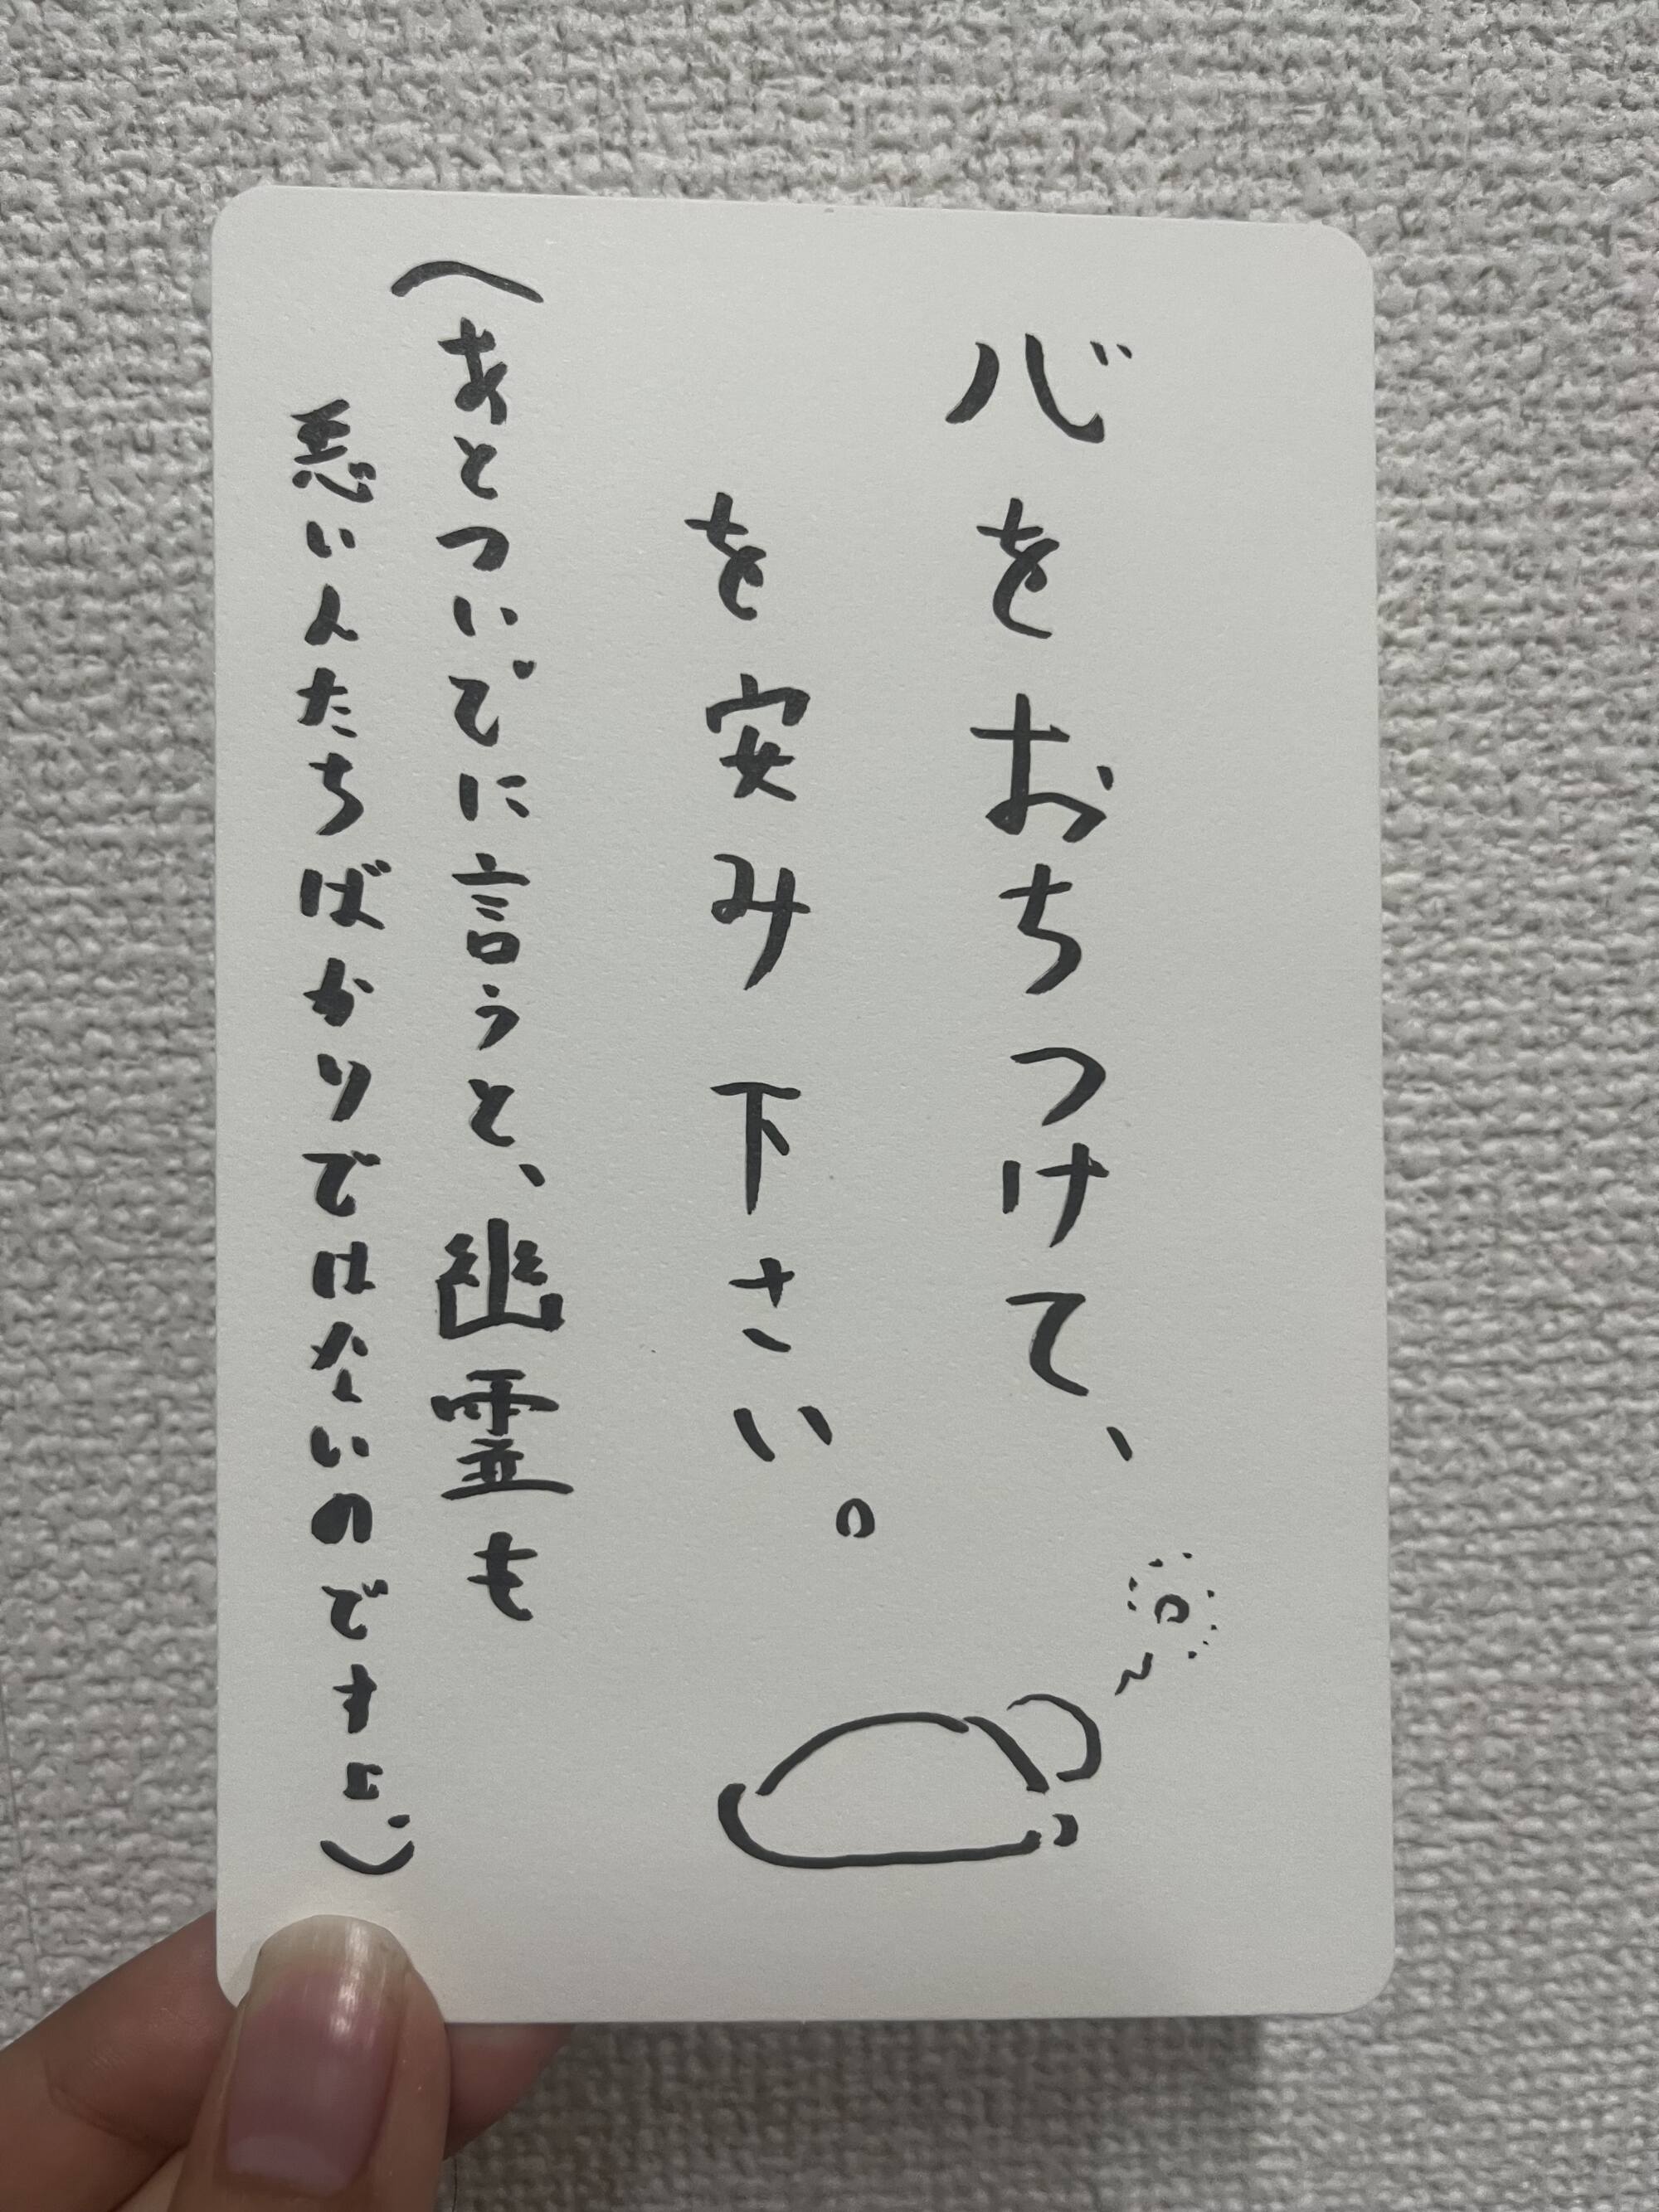 心をおちつけて、
を安み下さい。
(あとついでに言うと、幽霊も
悪い人たちばかりではないのですよ、)